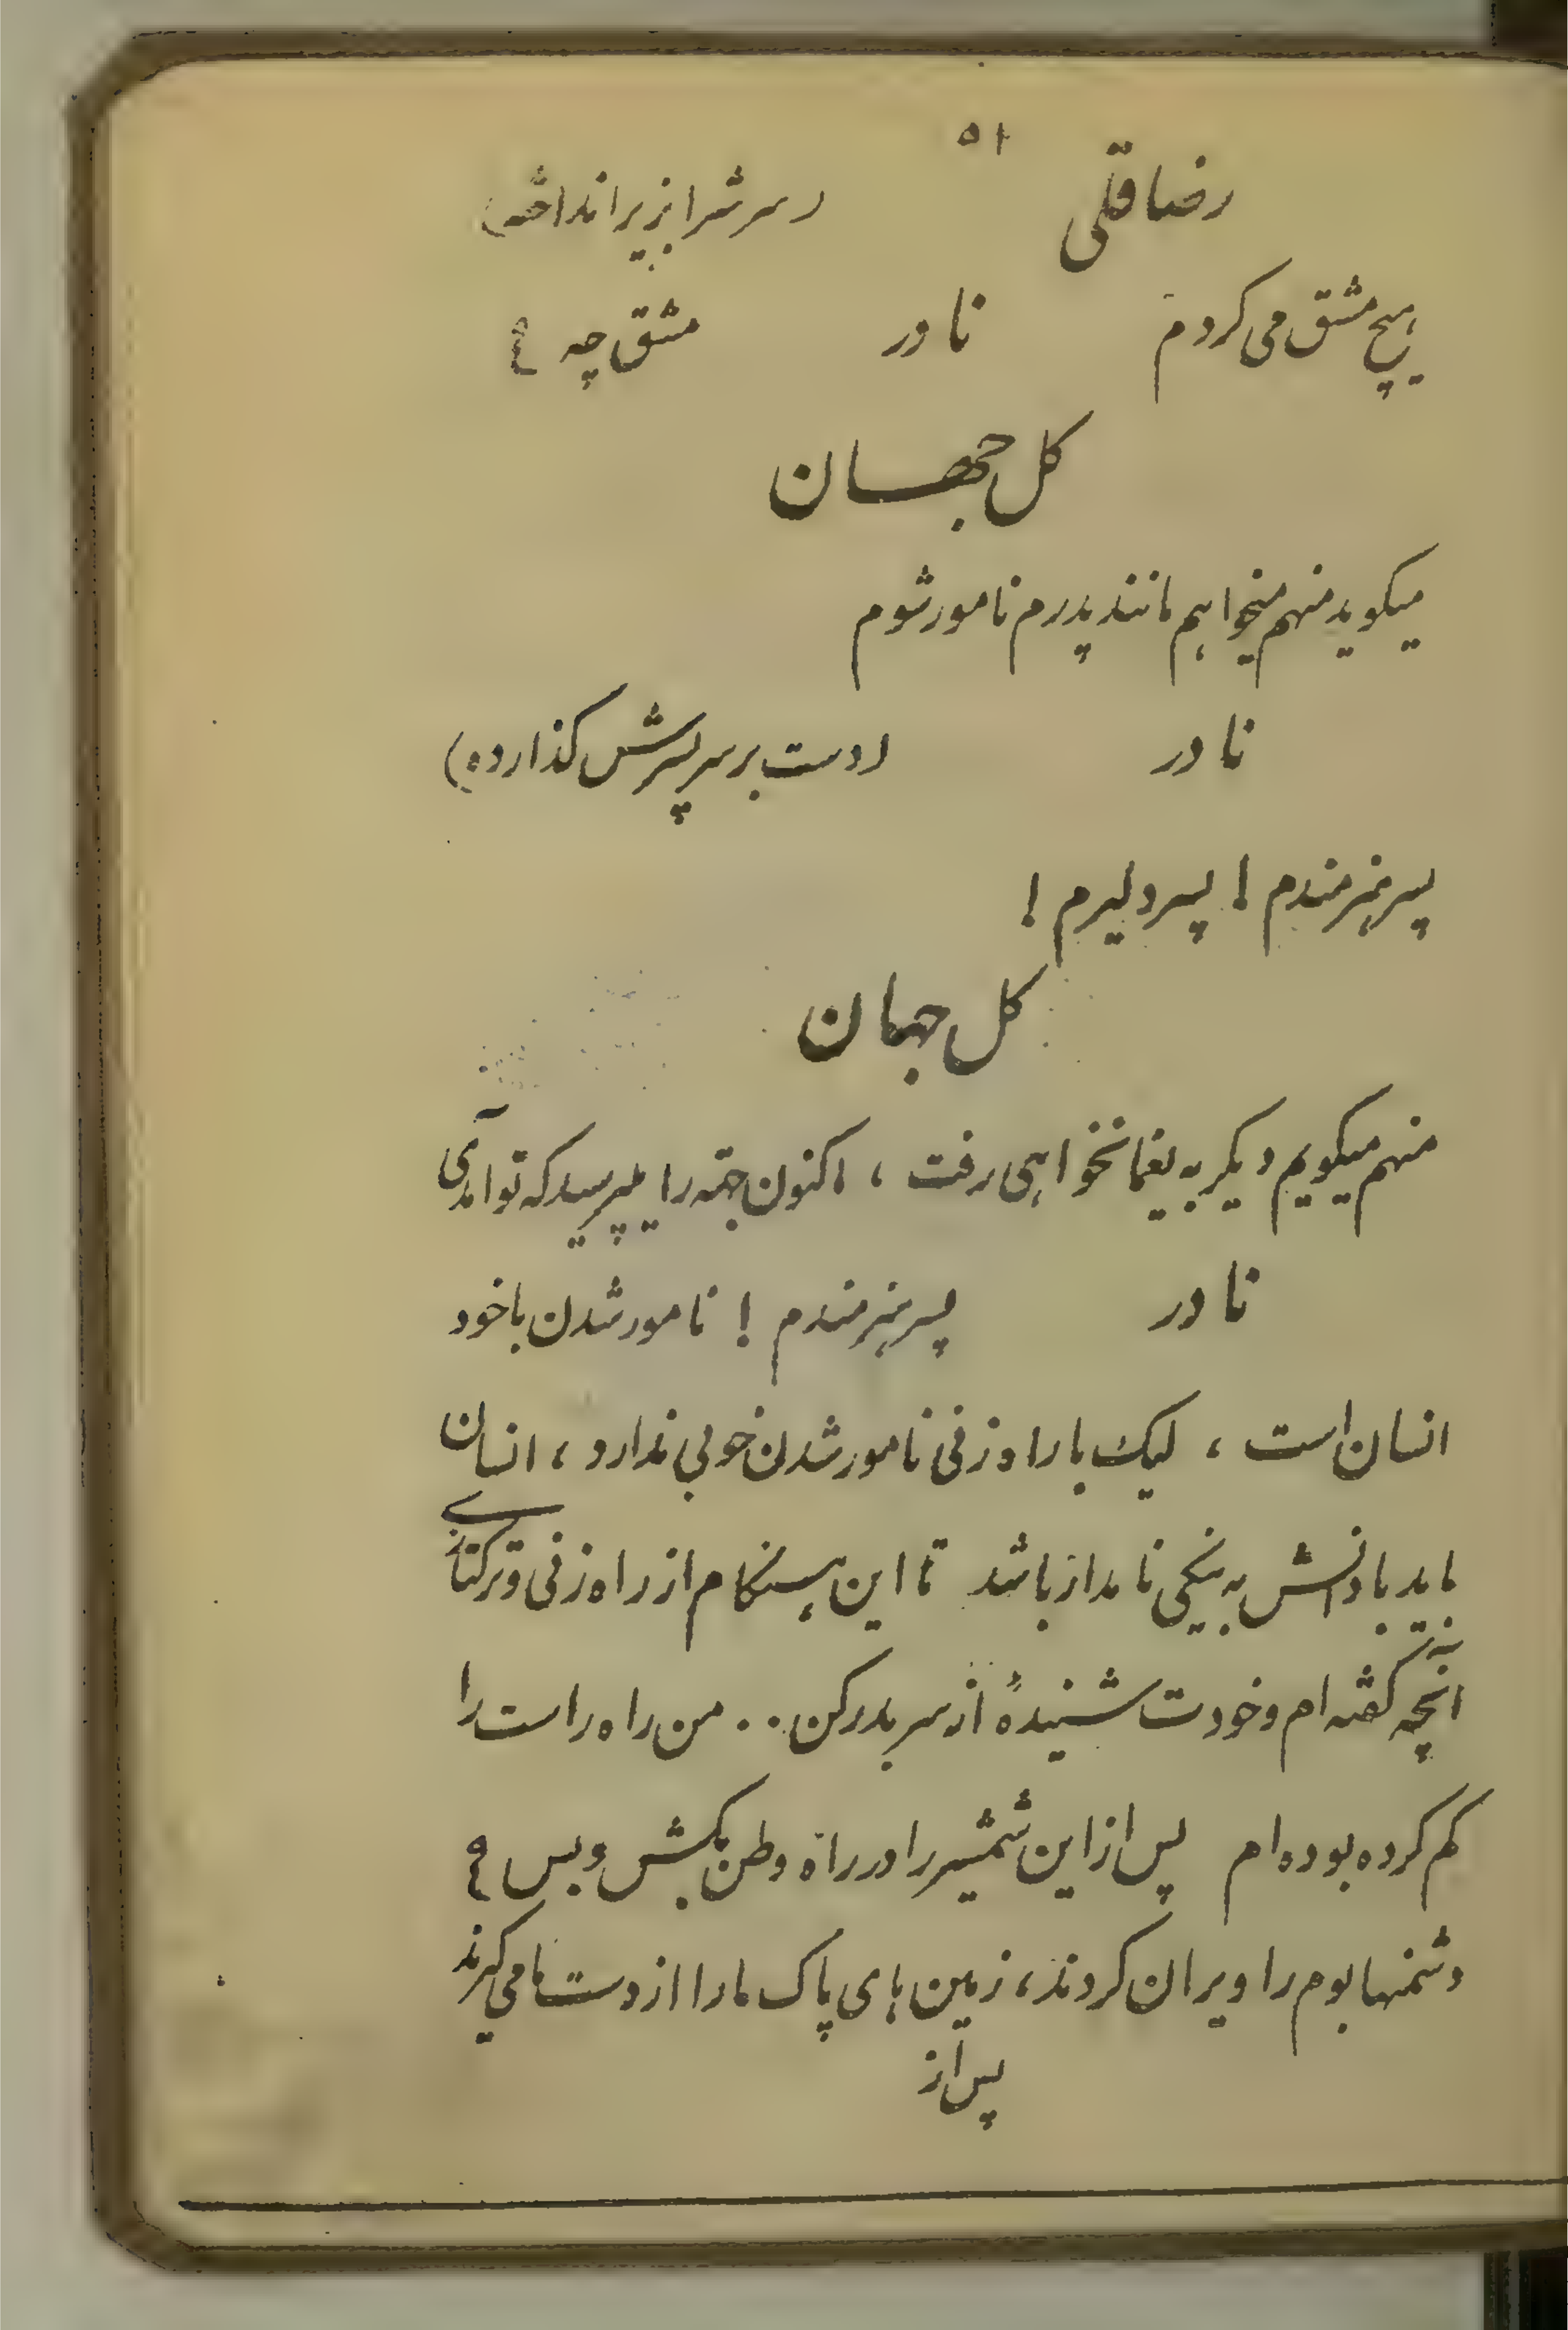 ۵۱
رضا قلی (سرش را بزیر انداخته)
هیچ مشق می کردم نادر مشق چه ؟
کل جهان
میکوید منهم میخواهم مانند پدرم نامور شوم
نادر (دست بر سر پسرش کذارده)
پسر هنرمندم ! پسر دلیرم !
کل جهان
منهم میکویم دیکر به یغما نخواهی رفت ، اکنون جمه را میپرسید که تو آمدی
نادر پسر هنرمندم ! نامور شدن با خود
انسان است ، لیک با راه زنی نامور شدن خوبی ندارد ، انسان
باید با دانش به نیکی نامدار باشد تا این هنکام از راه زنی و ترکتازی
آنچه کفته ام و خودت شنیدهٔ از سر بدر کن . . من راه راست را
کم کرده بوده ام پس از این شمشیر را در راه وطن بکش و بس ؟
دشمنها بوم را ویران کردند ، زمین های پاک ما را از دست ما می کیرند
پس از